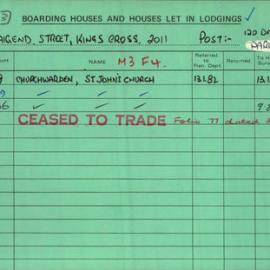 3 BOARDING HOUSES AND HOUSES LET IN LODGINGS
AIGEND, STREET, KINGS CROSS, 2011 POST:- 120 DA
NAME M3 F4. Referred to Plan. Dept. Returned To H Surv
9 CHURCHWARDEN, ST JOHN'S CHURCH 13.1.82 13.1
CEASED TO TRADE Folio 77 dated